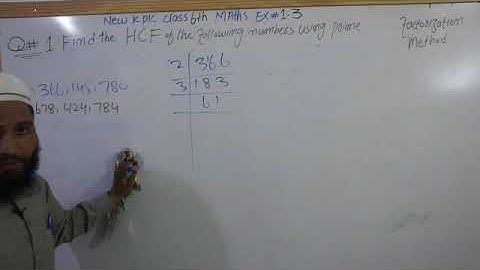 New KPK class 6th Maths EX#1.3
Q#1 Find the HCF of the following numbers using prime
Factorization
Method
366, 145, 780
678, 424, 784
2 | 366
3 | 183
61